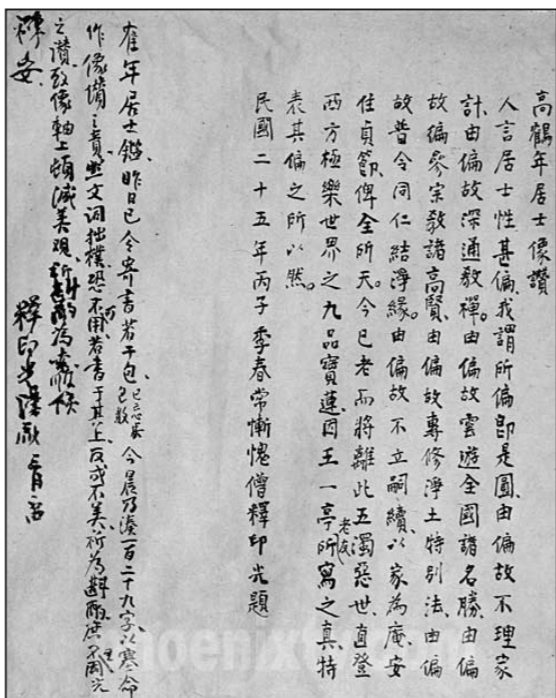 高鶴年居士像讚
人言居士性甚偏。我謂所偏即是圓。由偏故不理家
計。由偏故深通教禪。由偏故雲遊全國諸名勝。由偏
故徧參宗教諸高賢。由偏故專修淨土特別法。由偏
故普令同仁結淨緣。由偏故不立嗣續。以家為庵安
住貞節俾全所天。今已老而將離此五濁惡世。直登
西方極樂世界之九品寶蓮。因王一亭老友所寫之真。特
表其偏之所以然。
民國二十五年丙子季春常慚愧僧釋印光題
隺年居士鑑、昨日已令寄書若干包、已忘其包數 今晨乃湊一百二十九字、以塞命
作像讚之責。然文詞拙樸、恐不可用。若書于其上、反或不美。祈為斟酌。庶不因光
之讚、致像軸上頓減美觀、為 候
禪安 釋印光謹啟
phoenixtv.com